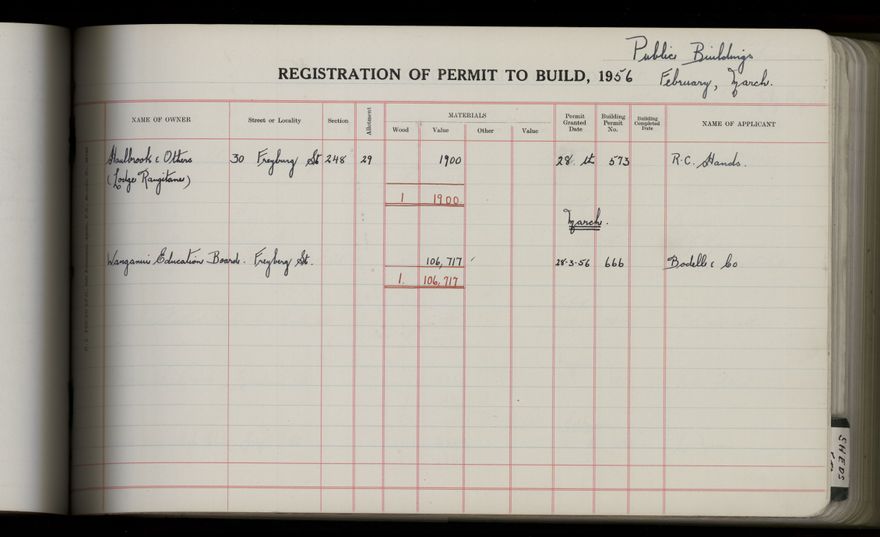 Public Buildings
REGISTRATION OF PERMIT TO BUILD, 1956 February, March.
NAME OF OWNER Street or Locality Section Allotment MATERIALS Wood Value Other Value Permit Granted Date Building Permit No. Building Completed Date NAME OF APPLICANT
30 Freyburg St 248 29 1900 28 th 573 R.C. Hands.
(Lodge Rangitane)
1 1900
March.
Wanganui Education Board. Freyberg St. 106,717 28-3-56 666 Bodell & Co
1. 106,717
SHEDS